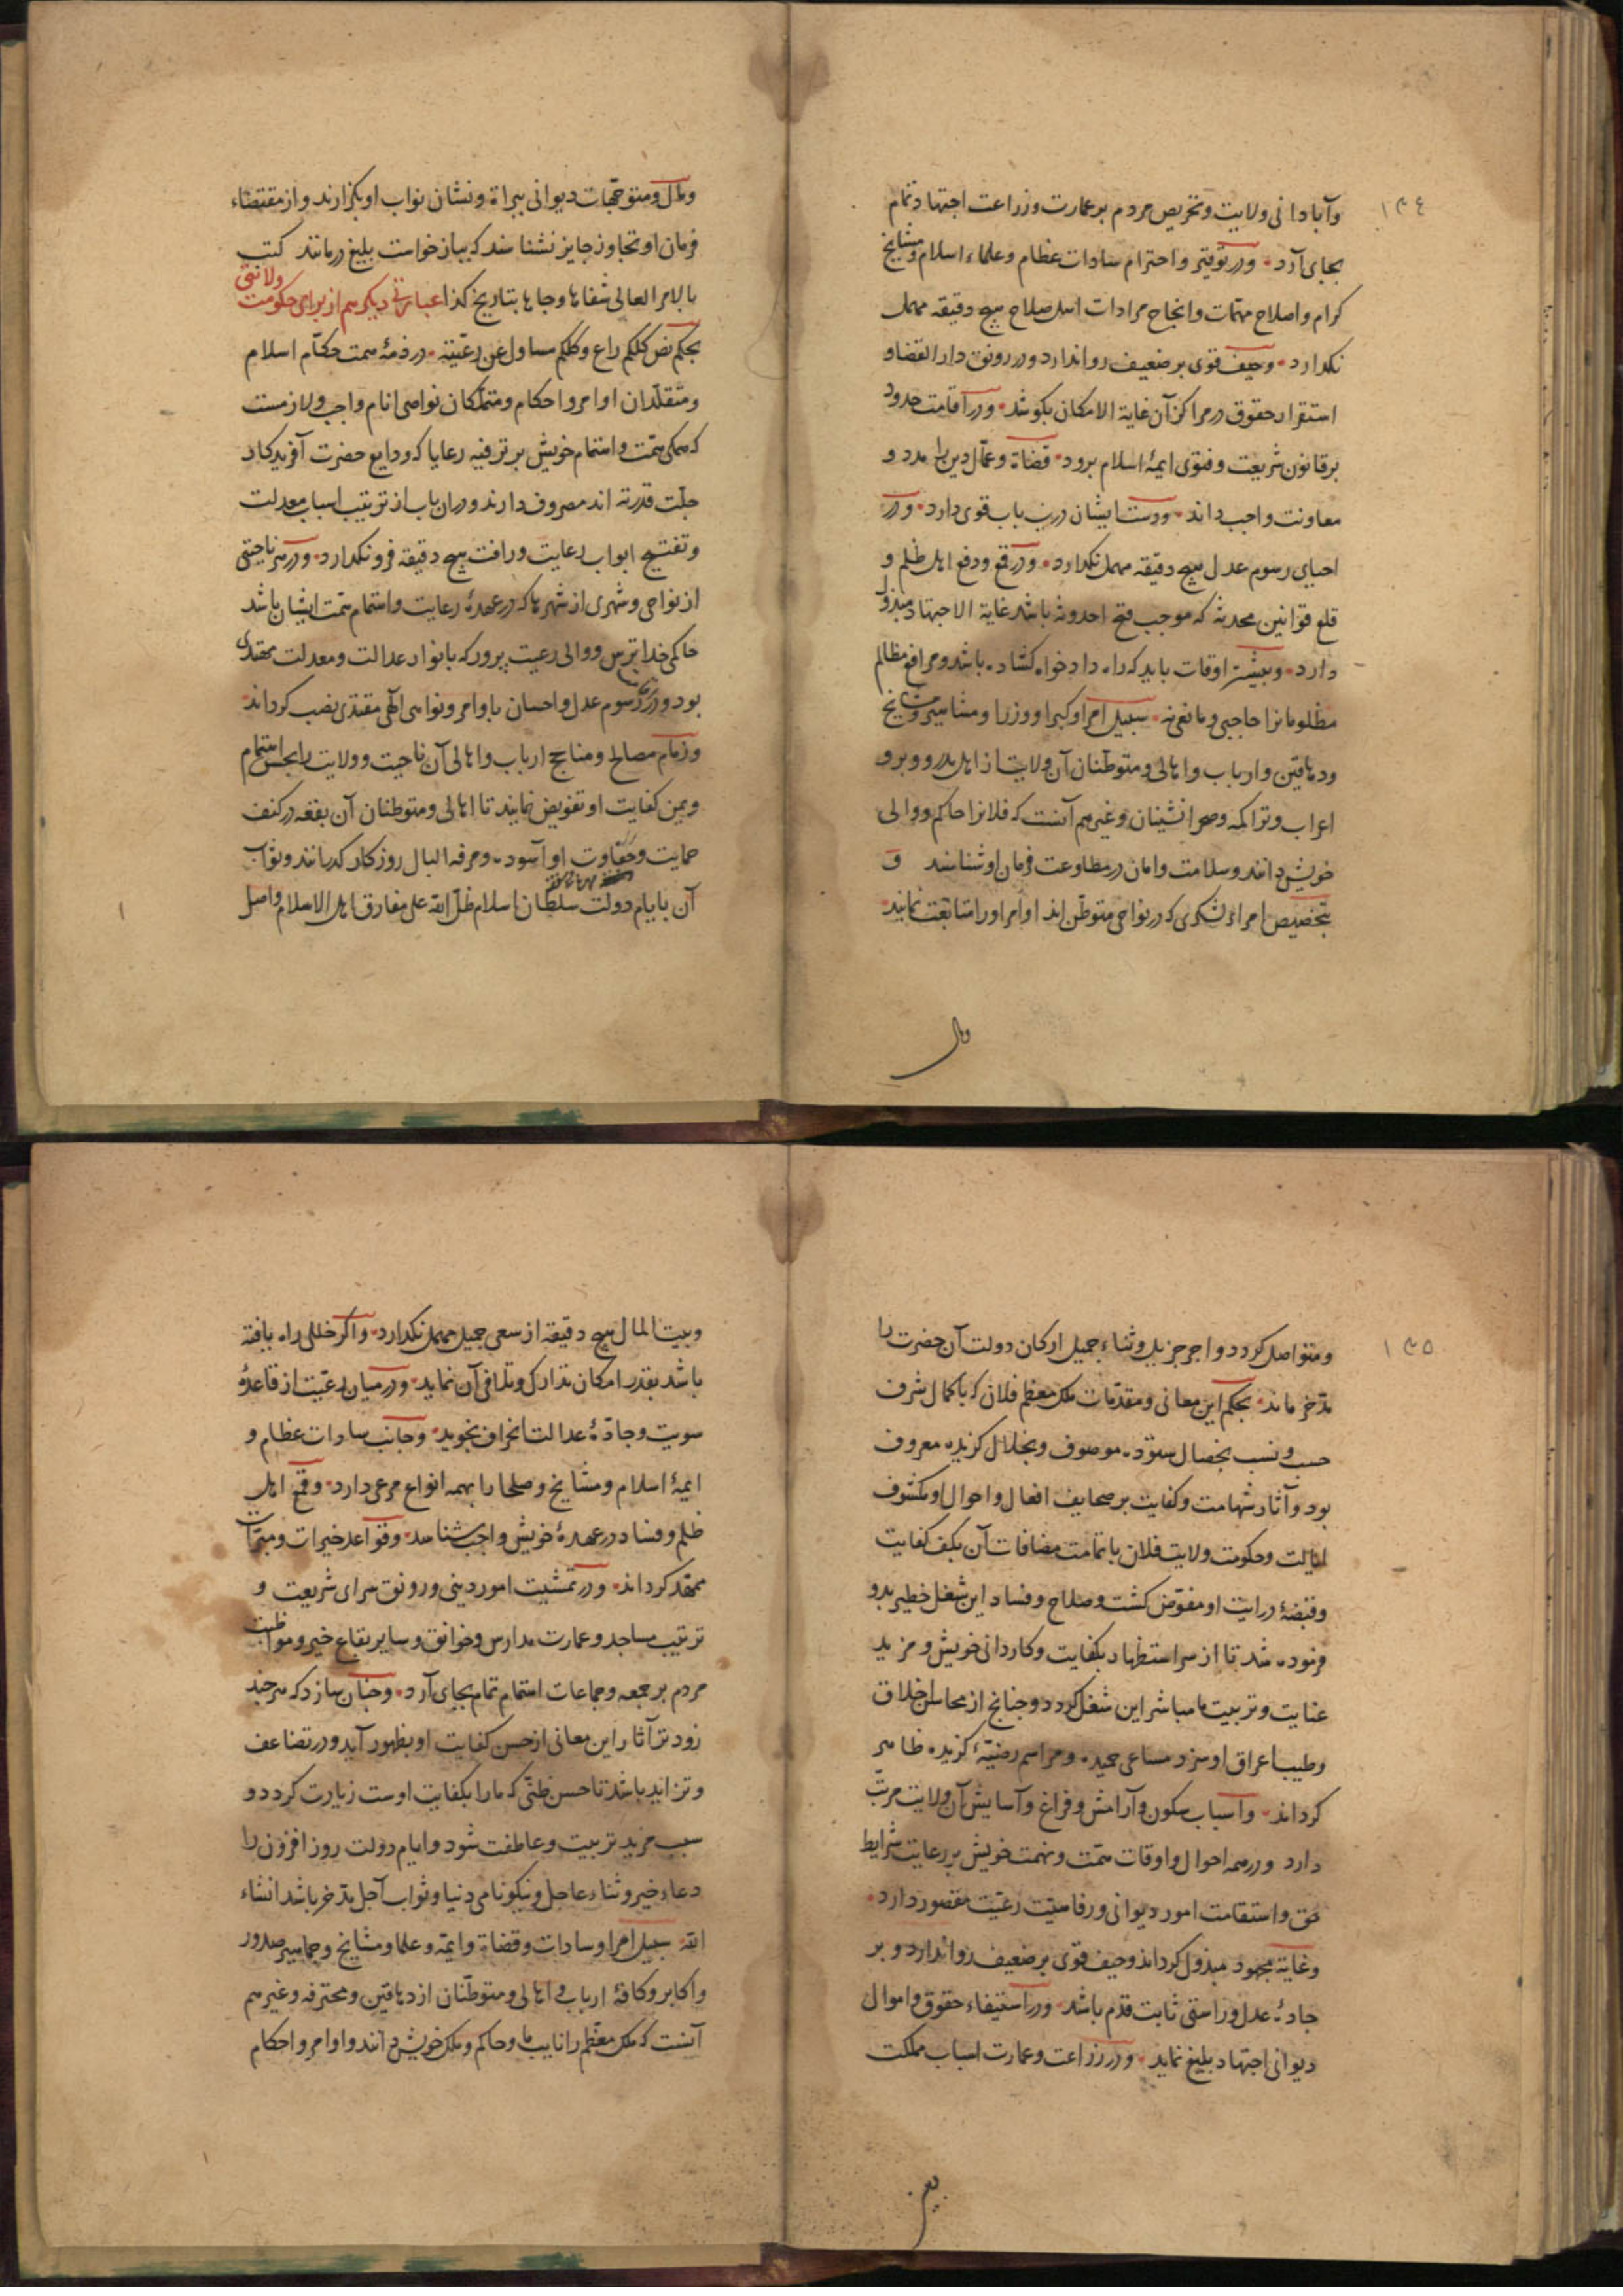 ۱۳۴
وآبادانی ولایت وتحریص مردم بر عمارت وزراعت اجتهاد تمام
بجای آرد ودر توقیر واحترام سادات عظام وعلماء اسلام ومشایخ
کرام واصلاح مهمّات وانجاح مرادات اهل صلاح هیچ دقیقه مهمل
نکذارد وحیف قوی بر ضعیف روا ندارد ودر رونق دار القضا و
استقرار حقوق در مراکز آن غایة الامکان بکوشد ودر اقامت حدود
بر قانون شریعت وفتوی ایمهٔ اسلام برود قضاة وعمّال دین را مدد و
معاونت واجب داند ودست ایشان درین باب قوی دارد ودر
احیای رسوم عدل هیچ دقیقه مهمل نکذارد ودر قمع ودفع اهل ظلم و
قلع قوانین محدثه که موجب قبح احدوثه باشد غایة الاجتهاد مبذول
دارد وبیشتر اوقات باید که راه دادخواه کشاده باشد ومرافع مظالم
مظلومانرا حاجبی ومانعی نه سبیل امرا وکبرا ووزرا ومشاهیر ومشایخ
ودهاقین وارباب واهالی ومتوطّنان آن ولایت از اهل مدر ووبر و
اعراب وتراکمه وصحرانشینان وغیرهم آنست که فلانرا حاکم ووالی
خویش دانند وسلامت وامان در مطاوعت فرمان او شناسند و
بتخصیص امراء لشکری که در نواحی متوطّن اند اوامر او را متابعت نمایند
ومال
ومال ومتوجّهات دیوانی ببراة ونشان نواب او بکزارند واز مقتضاء
فرمان او تجاوز جایز نشناسند که بباز خواست بلیغ درمانند کتب
بالامر العالی شفاها وجاها بتاریخ کذا عبارتی دیکر هم از برای حکومت ولایتی
بحکم نص کلکم راع وکلکم مسٔاول عن رعیّته در ذمهٔ همت حکّام اسلام
ومتقلّدان اوامر واحکام ومتملّکان نواصی انام واجب ولازمست
که همکی همّت واهتمام خویش بر ترفیه رعایا که ودایع حضرت آفریدکار
جلّت قدرته اند مصروف دارند ودران باب از ترتیب اسباب معدلت
وتفتیح ابواب رعایت ورافت هیچ دقیقه فرو نکذارد ودر هر ناحیتی
از نواحی وشهری از شهرها که در عهدهٔ رعایت واهتمام همّت ایشان باشد
حاکمی خداترس ووالی رعیت پرور که بانوار عدالت ومعدلت مهتدی
بود ودر رسوم عدل واحسان باوامر ونواهی الهی مقتدی نصب کرداند
وزمام مصالح ومناجح ارباب واهالی آن ناحیت وولایت را بحسن اهتمام
ویمن کفایت او تفویض نمایند تا اهالی ومتوطنان آن بقعه در کنف
حمایت وحفاوت او آسوده ومرفه البال روزکار کذرانند وثواب
آن بایام دولت سلطان اسلام ظلّ الله علی مفارق اهل الاسلام واصل
۱۳۵
ومتواصل کردد واجر جزیل وثناء جمیل ارکان دولت آن حضرت را
مدّخر ماند بحکم این معانی ومقدّمات ملک معظم فلان که با کمال شرف
حسب ونسب بخصال ستوده موصوف وبخلال کزیده معروف
بود وآثار شهامت وکفایت بر صحایف افعال واحوال او مکشوف
ایالت وحکومت ولایت فلان با تمامت مضافات آن بکف کفایت
وقبضهٔ درایت او مفوّض کشت وصلاح وفساد این شغل خطیر بدو
فرموده شد تا از سر استظهار بکفایت وکاردانی خویش ومزید
عنایت وتربیت ما مباشر این شغل کردد وچنانچ از محاسن اخلاق
وطیب اعراق او سزد مساعی حمیده ومراسم رضیّهٔ کزیده ظاهر
کرداند واسباب سکون وآرامش وفراغ وآسایش آن ولایت مرتّب
دارد ودر همه احوال واوقات همّت ونهمت خویش بر رعایت شرایط
حق واستقامت امور دیوانی ورفاهیّت رعیّت مقصور دارد
وغایة مجهود مبذول کرداند وحیف قوی بر ضعیف روا ندارد وبر
جادهٔ عدل وراستی ثابت قدم باشد ودر استیفاء حقوق واموال
دیوانی اجتهاد بلیغ نماید ودر زراعت وعمارت اسباب مملکت
وبیت المال هیچ دقیقه از سعی جمیل مهمل نکذارد واکر خللی راه یافته
باشد بقدر امکان تدارک وتلافی آن نماید ودر میان رعیّت از قاعدهٔ
سویت وجادّهٔ عدالت انحراف نجوید وجانب سادات عظام و
ایمهٔ اسلام ومشایخ وصلحا را بهمه انواع مرعی دارد وقمع اهل
ظلم وفساد در عهدهٔ خویش واجب شناسد وقواعد خیرات ومبرّات
ممهّد کرداند ودر تمشیت امور دینی ورونق سرای شریعت و
ترتیب مساجد وعمارت مدارس وخوانق وسایر بقاع خیر ومواظبت
مردم بر جمعه وجماعات اهتمام تمام بجای آرد وچنان سازد که هر چند
زودتر آثار این معانی از حسن کفایت او بظهور آید ودر تضاعف
وتزاید باشد تا حسن ظنّی که ما را بکفایت اوست زیادت کردد و
سبب مزید تربیت وعاطفت شود وایام دولت روز افزون را
دعاء خیر وثناء عاجل ونیکونامی دنیا وثواب آجل مدّخر باشد انشاء
الله سبیل امرا وسادات وقضاة وایمّه وعلما ومشایخ وجماهیر صدور
واکابر وکافهٔ ارباب واهالی ومتوطّنان از دهاقین ومحترفه وغیرهم
آنست که ملک معظّم را نایب ما وحاکم وملک خویش دانند واوامر واحکام